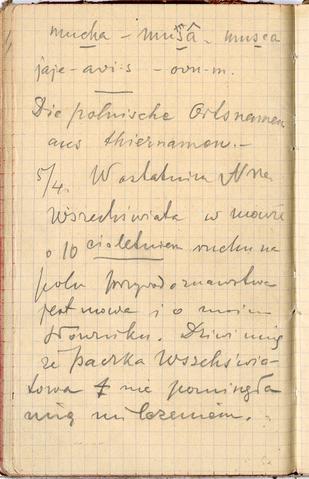 mucha – mušâ – musca
jaje – avi-s – ovu-m.
Die polnische Ortsnamen
aus thiernamen. –
5/4. W ostatnim Nrze
Wszechświata w mowie
o 10 cioletniem ruchu na
polu przyrodoznawstwa
jest mowa i o moim
słowniku. Dziwi mię
że paczka Wszechświa-
towa nie pominęła
mię milczeniem.